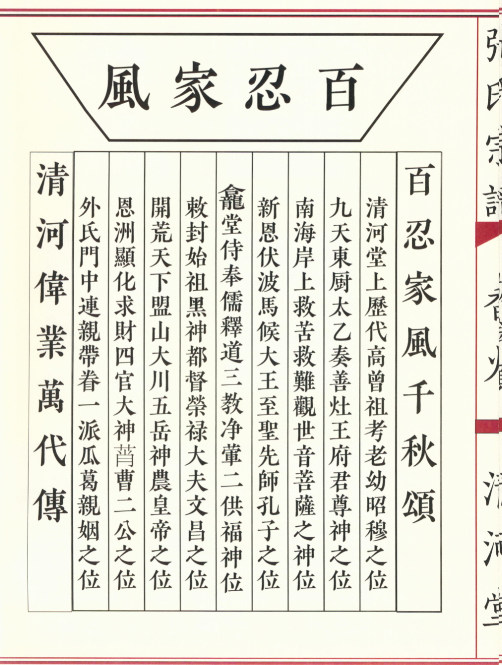 百忍家風
百忍家風千秋頌
清河堂上歷代高曾祖考老幼昭穆之位
九天東厨太乙奏善灶王府君尊神之位
南海岸上救苦救難觀世音菩薩之神位
新恩伏波馬候大王至聖先師孔子之位
龕堂侍奉儒釋道三教净葷二供福神位
敕封始祖黑神都督榮禄大夫文昌之位
開荒天下盟山大川五岳神農皇帝之位
恩洲顯化求財四官大神蕳曹二公之位
外氏門中連親帶眷一派瓜葛親姻之位
清河偉業萬代傳
張氏宗譜
清河堂